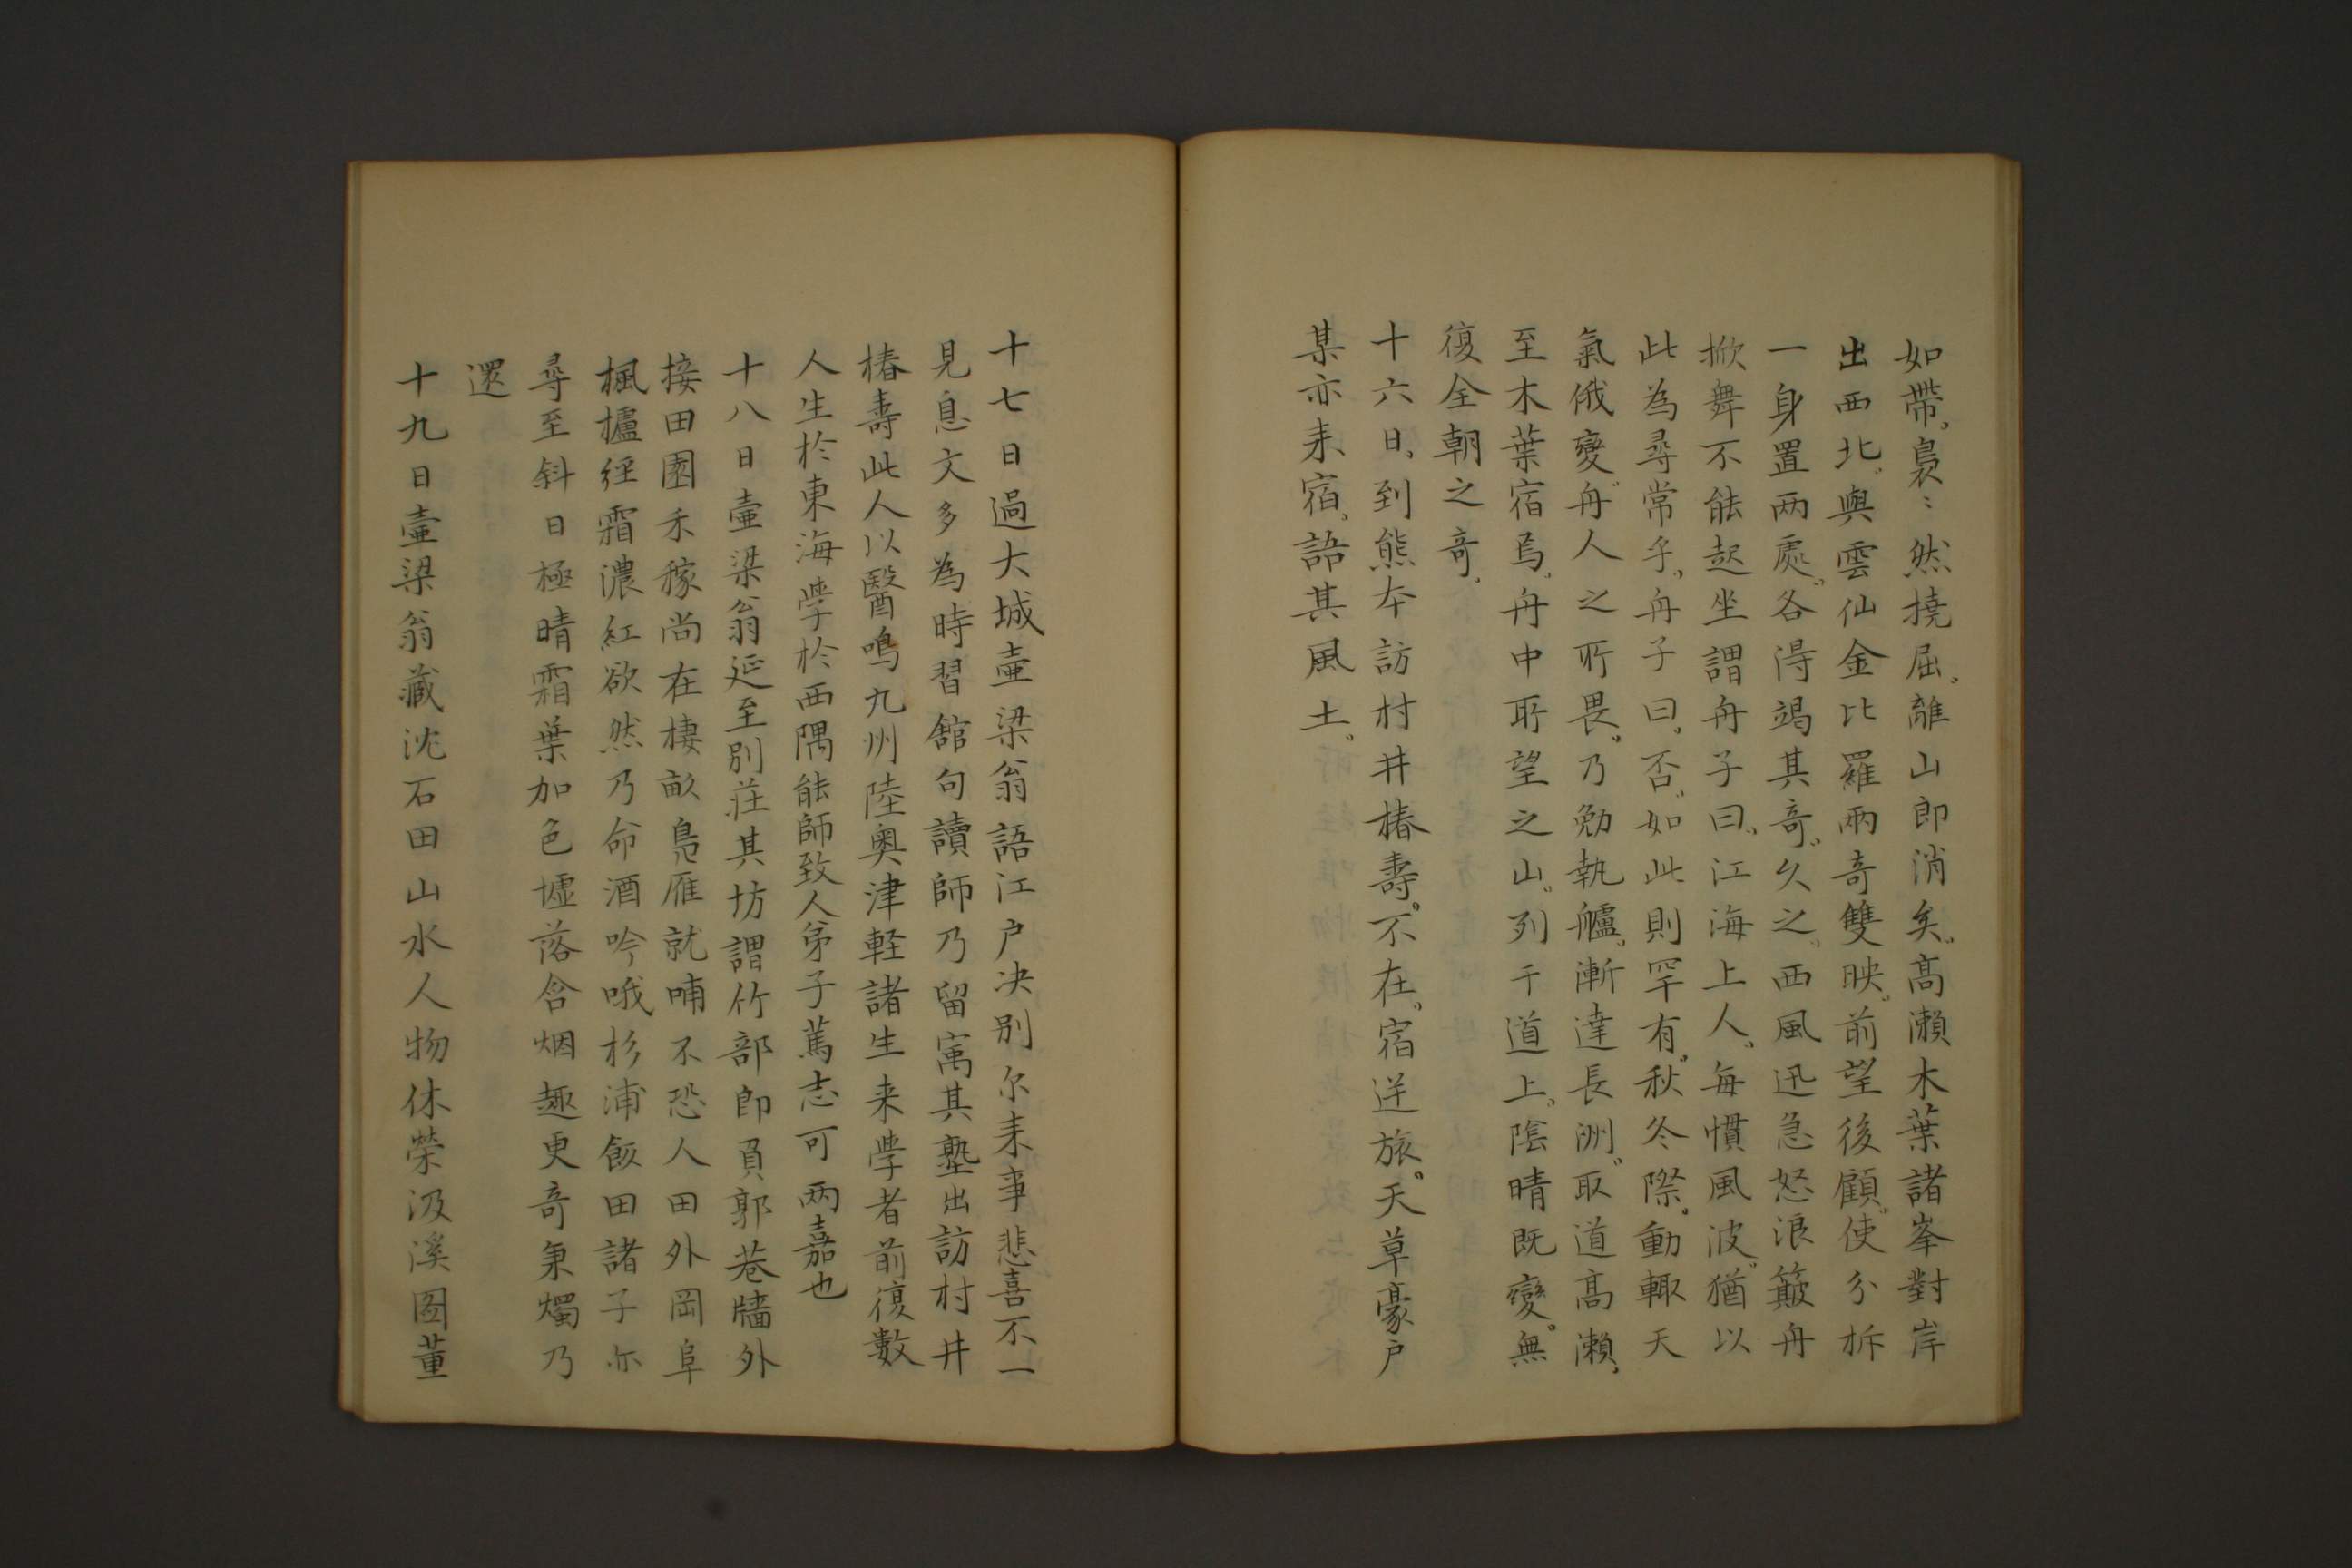 如帶、裊〻然撓屈、離山即消矣、高瀨木葉諸峯對岸
出西北、與雲仙金比羅兩奇雙映、前望後顧、使分拆
一身置两處、各得竭其奇、久之、西風迅急怒浪簸舟
掀舞不能起坐謂舟子曰、江海上人、每慣風波、猶以
此為尋常乎、舟子曰、否、如此則罕有、秋冬際、動輙天
氣俄變、舟人之所畏、乃勉執艫、漸達長洲、取道高瀨、
至木葉宿焉、舟中所望之山、列于道上、陰晴既變、無
復全朝之奇、
十六日、到熊本訪村井椿壽、不在、宿逆旅、天草豪戶
某亦来宿、語其風土、
十七日過大城壷梁翁語江户决別尔来事悲喜不一
見息文多為時習館句讀師乃留寓其塾出訪村井
椿壽此人以醫鳴九州陸奥津軽諸生来學者前復數
人生於東海學於西隅能師致人弟子篤志可两嘉也
十八日壷梁翁延至別莊其坊謂竹部即負郭巷牆外
接田園禾稼尚在棲畝鳧雁就哺不恐人田外岡阜
楓櫨経霜濃紅欲然乃命酒吟哦杉浦飯田諸子亦
尋至斜日極晴霜葉加色墟落含烟趣更奇秉燭乃
還
十九日壷梁翁藏沈石田山水人物休榮汲溪図董